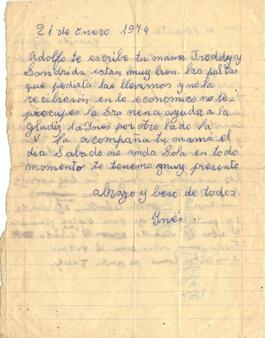 21 de Enero 1974
Adolfo te escribe tu mama Froddy y
Sandrada estan muy bien las paltas
que pediata las llevamos y no la
recibiesen en lo economico no te
preocupes la Sra nena ayuda a la
Gladiz la Ines por otro lado la
V. la acompaña tu mama el
dia Sabado no anda Sola en todo
momento te tenemo muy presente
abrazo y beso de todos
Ines.